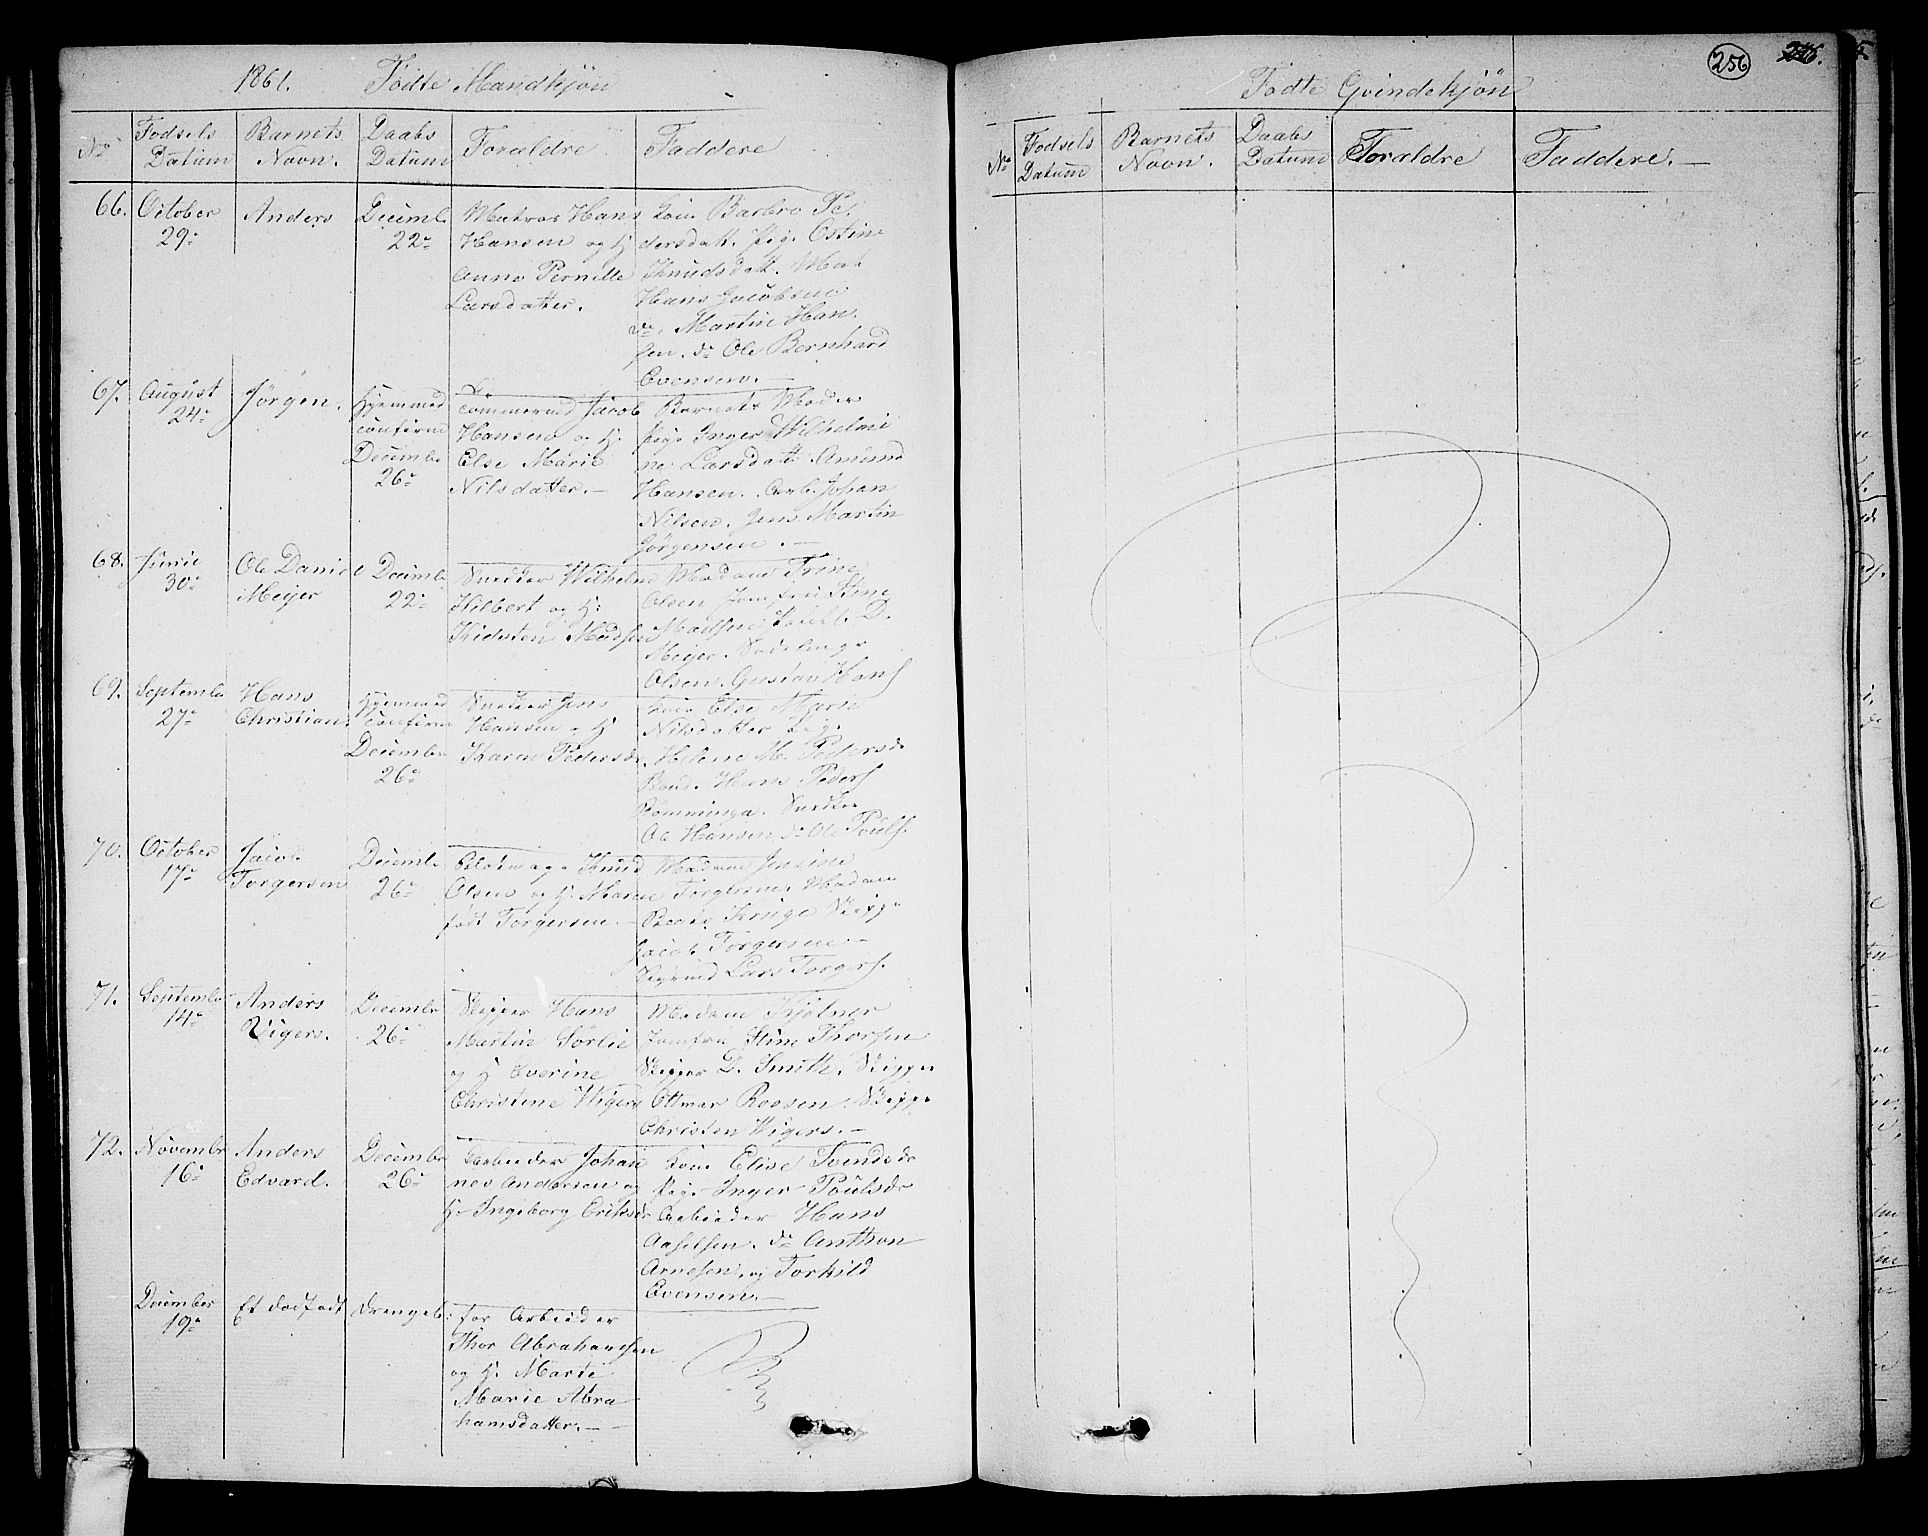 1861. Födte Mandkjön
No Fodsels Datum Barnets Navn. Daabs Datum Forældre Faddere
66. October 29de Anders Decemb. 22de
Matros Hans
Hansen og H
Anne Pernille
Larsdatter.
Kone Barbro Pe-
dersdatt. Pige Ostine
Knudsdatt. Mat
Hans Jacobsen
do. Martin Han
sen. do Ole Bernhard
Evensen.—
67. August 24de Jörgen. Hjemmed confirm Decembr 26de
Tömmermd Jacob
Hansen og H.
Else Marie
Nilsdatter.—
Barnets Moder
Pige Inger Wilhelmi
ne Larsdatt Amund
Hansen. Arb. Johan
Nilsen. Jens Martin
Jörgensen.—
68. Junie 30de Ole Daniel Meijer Decembr 22de
Snedker Wilhelm
Hilbert og H:
Kidsten Madsen
Madame Trine
Olsen Jomfru Stine
Madsen D.
Meijer.
Olsen. Gustav Hans
69. Septembr 27de Hans Christian. Hjemmed confirm Decembr 26de
Snedker Jens
Hansen og H
Karen Pedersdr
Kone Else Marie
Nilsdatter Pige
Helene M. Pedersdr
Hans Peders
Romminga. Snedker
Ole Hansen, do Ole Pouls.
70. October 17de Jacob Torgersen Decembr 26de
Knud
Olsen og H. Maren
födt Torgersen.—
Madame Jensine
Torgersen Madam
Kruge Skipp
Jacob Torgersen—
Lars Torgers.
71. Septembr 14de Anders Vigers. Decembr 26de
Skipper Hans
Martin Sörlie
og H Everine
Christine Wigers
Madame Kjölner
Jomfru Stine Thorsen
Skipper D. Smith. Skipper
Ottmar Roosen. Skipp
Christen Wigers.—
72. Novembr 16de Anders Edvard. Decembr 26de
Arbeider Johan
nes Andersen og
H. Ingeborg Eriksdr
Kone Elise Svendsdr
Pige Inger Poulsdr
Arbeider Hans
Axelsen. do Anthon
Arnesen, og Torkild
Evensen.—
December 19de Et dödfödt Drengeb.
for Arbeider
Thor Abrahamsen
og H. Marte
Marie Abra
hamsdatter.—
256 246.
Fodte Qvindekjön
No Fodsels Datum Barnets Navn. Daabs Datum Forældre Faddere.—